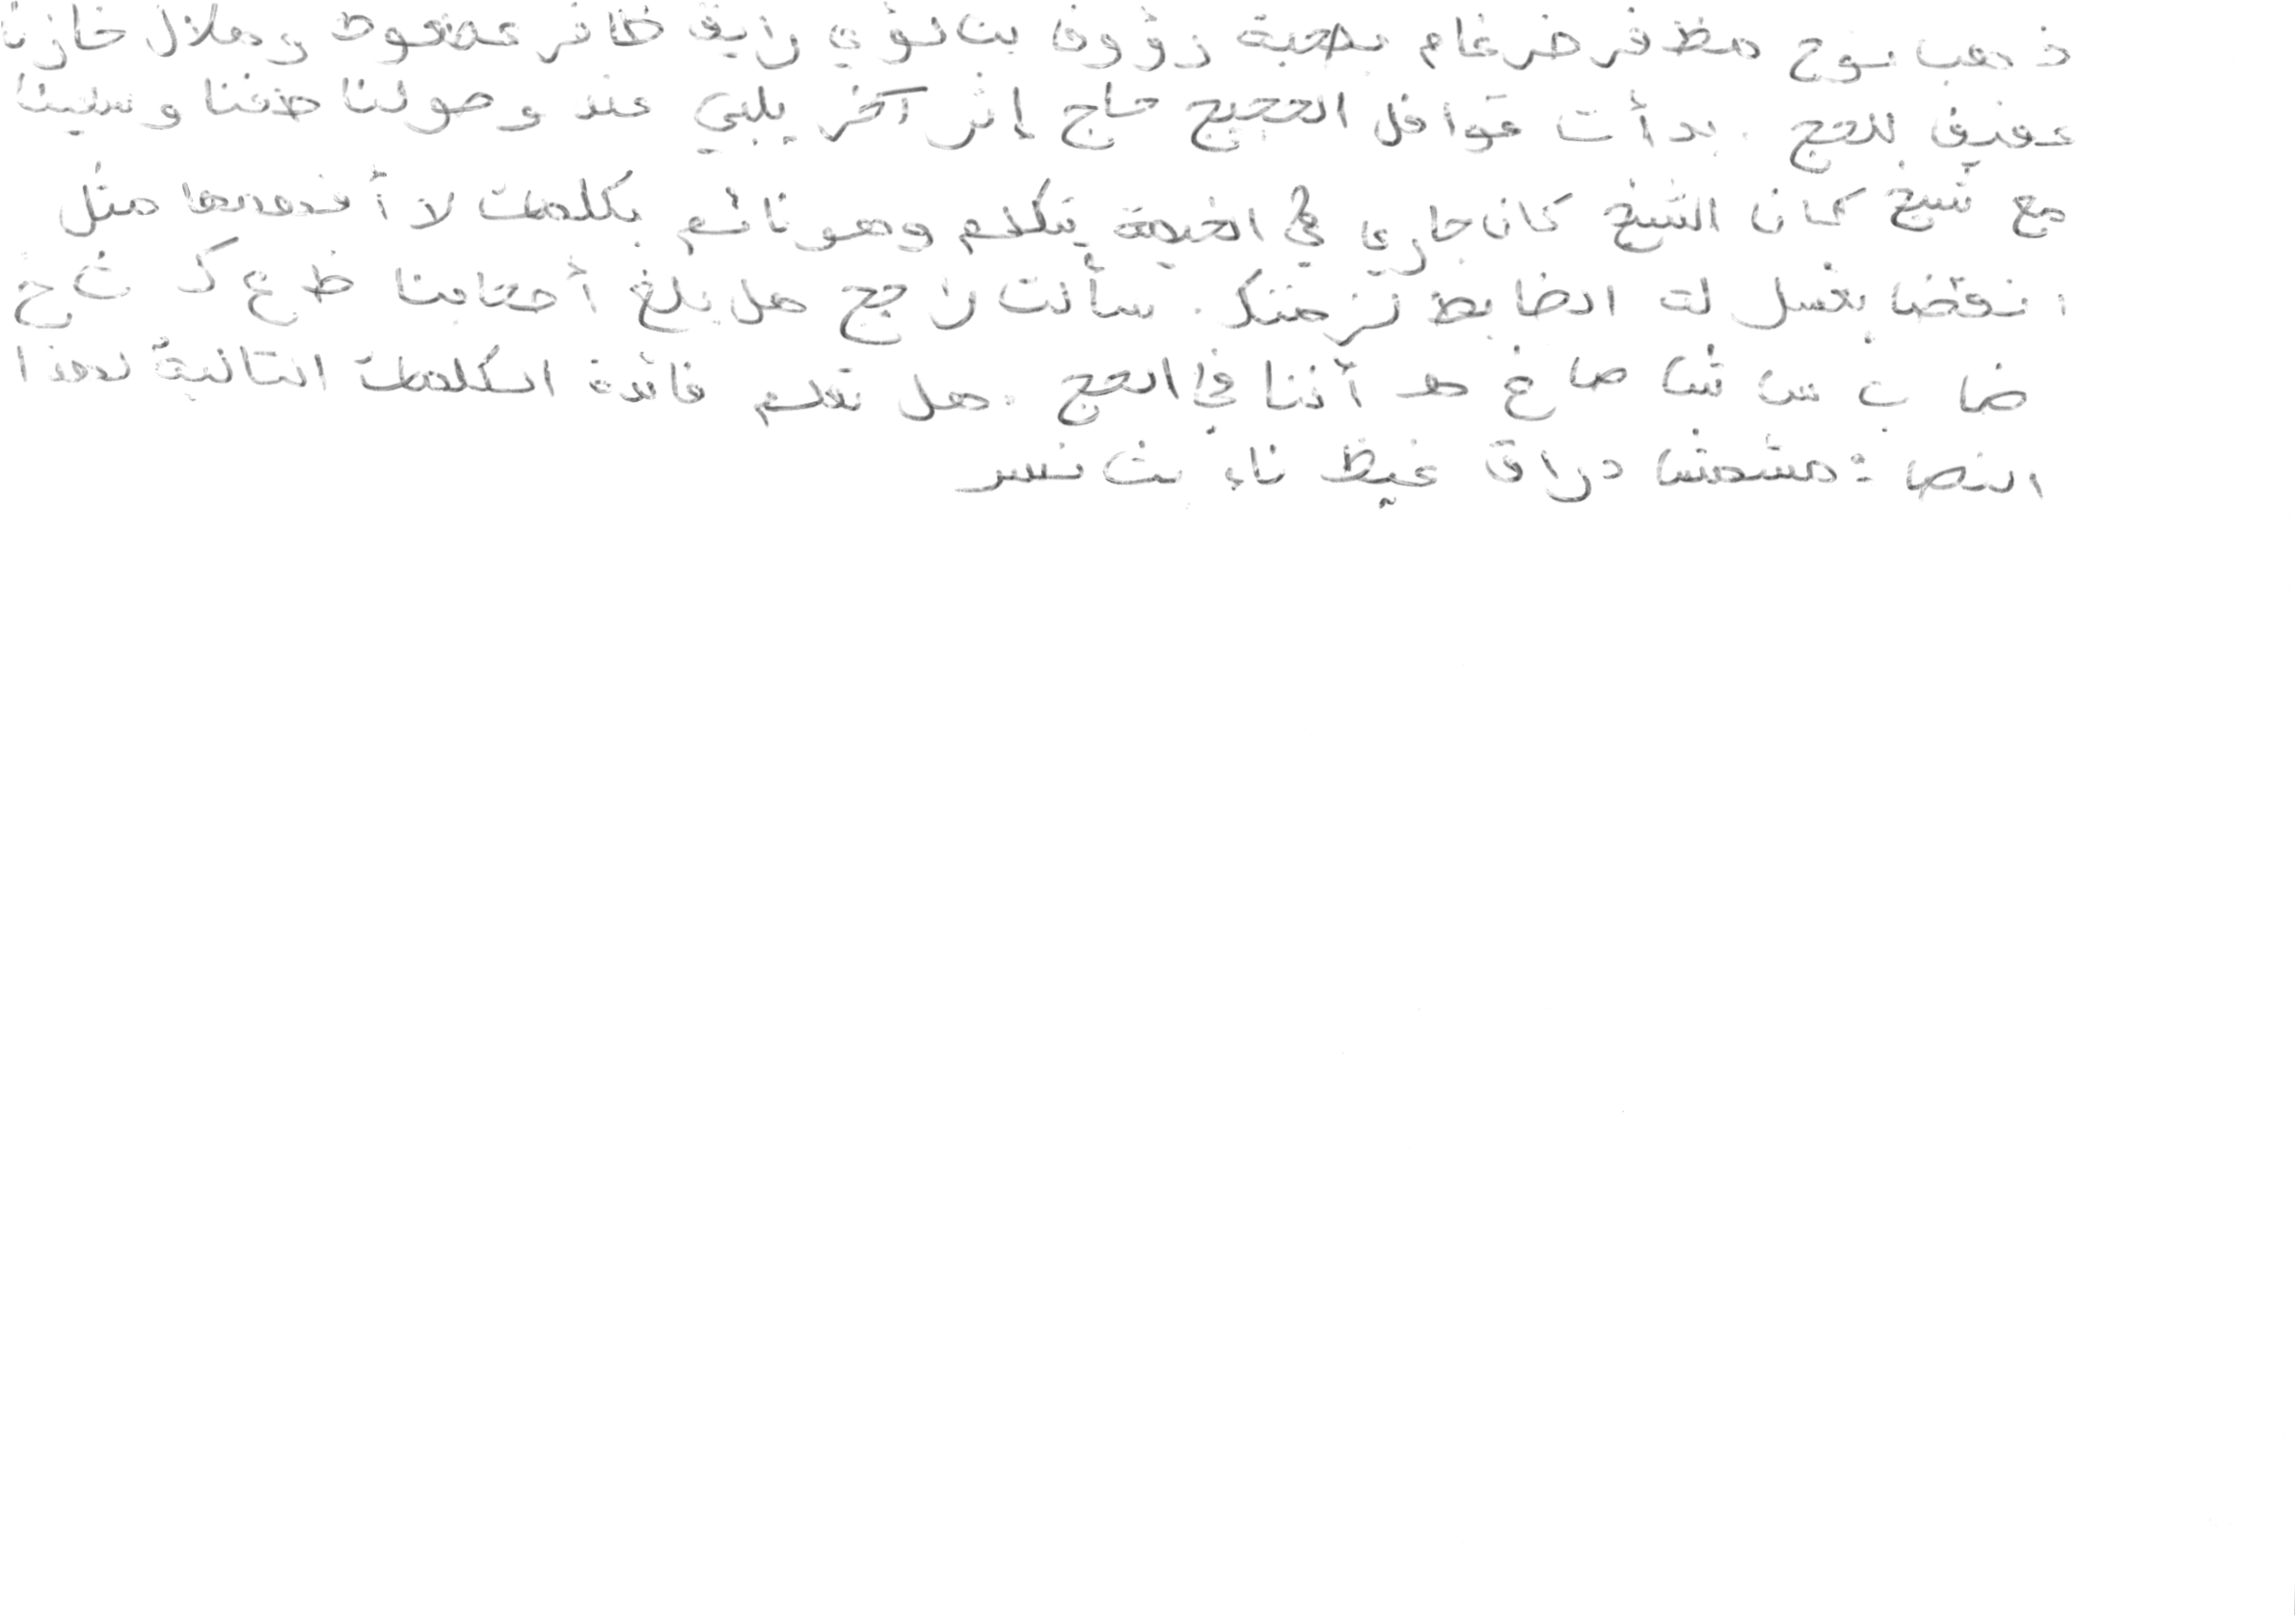 ذهب نوح مظفر ضرغام بصحبة رؤوف بن لؤي رايق ظافر عضعوط وهلال خازن
عفيف للحج . بدأت قوافل الحجيج حاج إثر آخر يلبي عند وصولنا طفنا وسعينا
مع شيخ كان الشيخ كان جاري في الخيمة يتكلم وهو نائم بكلمات لا أفهمها مثل
انقض بغسل لت الضابط نزحتك . سألت راجح هل بلغ أحقابنا ظ ع ك ث خ
ض ب س ش ص غ هـ أننا في الحج . هل تعلم فائدة الكلمات التالية لهذا
النص : مشمش دراق غيظ ناء بث نسر